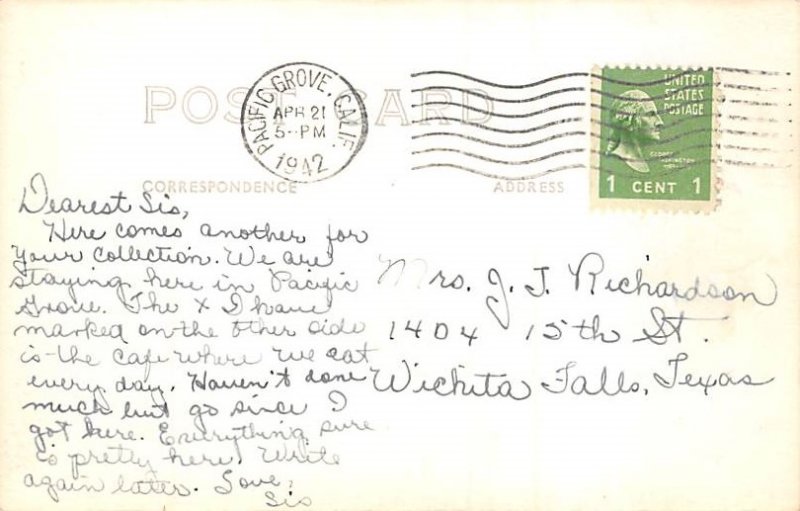 POST CARD
PACIFIC GROVE, CALIF.
APR 21
5-PM
1942
UNITED
STATES
POSTAGE
GEORGE
WASHINGTON
1 CENT 1
CORRESPONDENCE
ADDRESS
Dearest Sis,
Here comes another for
your collection. We are
staying here in Pacific
Grove. The x I have
marked on the other side
is the cafe where we eat
every day. Haven't done
much but go since I
got here. Everything sure
is pretty here. Write
again later. Love,
Sis
Mrs. J. T. Richardson
1404 15th St.
Wichita Falls, Texas